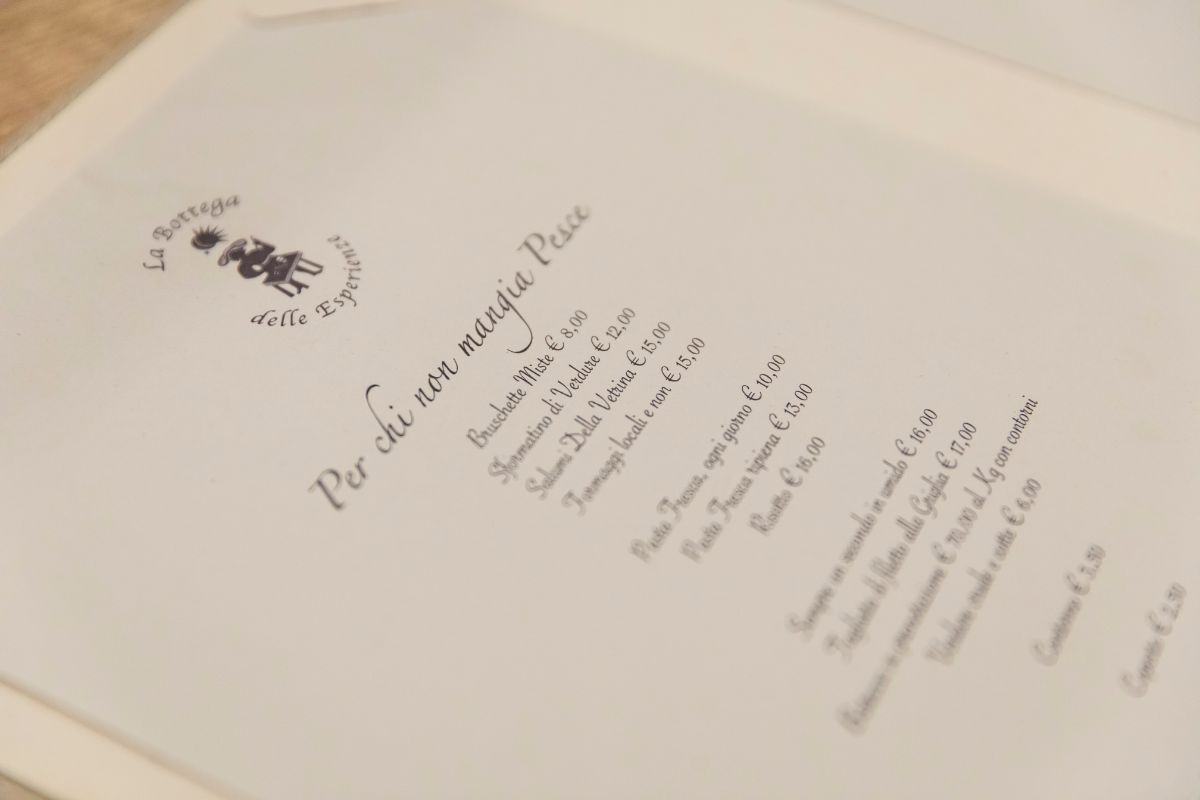 La Bottega
delle Esperienze
Per chi non mangia Pesce
Bruschette Miste € 8,00
Sformatino di Verdure € 12,00
Salumi Della Vetrina € 15,00
Formaggi locali e non € 15,00
Pasta Fresca, ogni giorno € 10,00
Pasta Fresca ripiena € 13,00
Risotto € 16,00
Sempre un secondo in umido € 16,00
Tagliata di filetto alla Griglia € 17,00
su prenotazione € 70,00 al Kg con contorni
Verdure crude e cotte € 6,00
€ 3.50
Coperto € 2.50